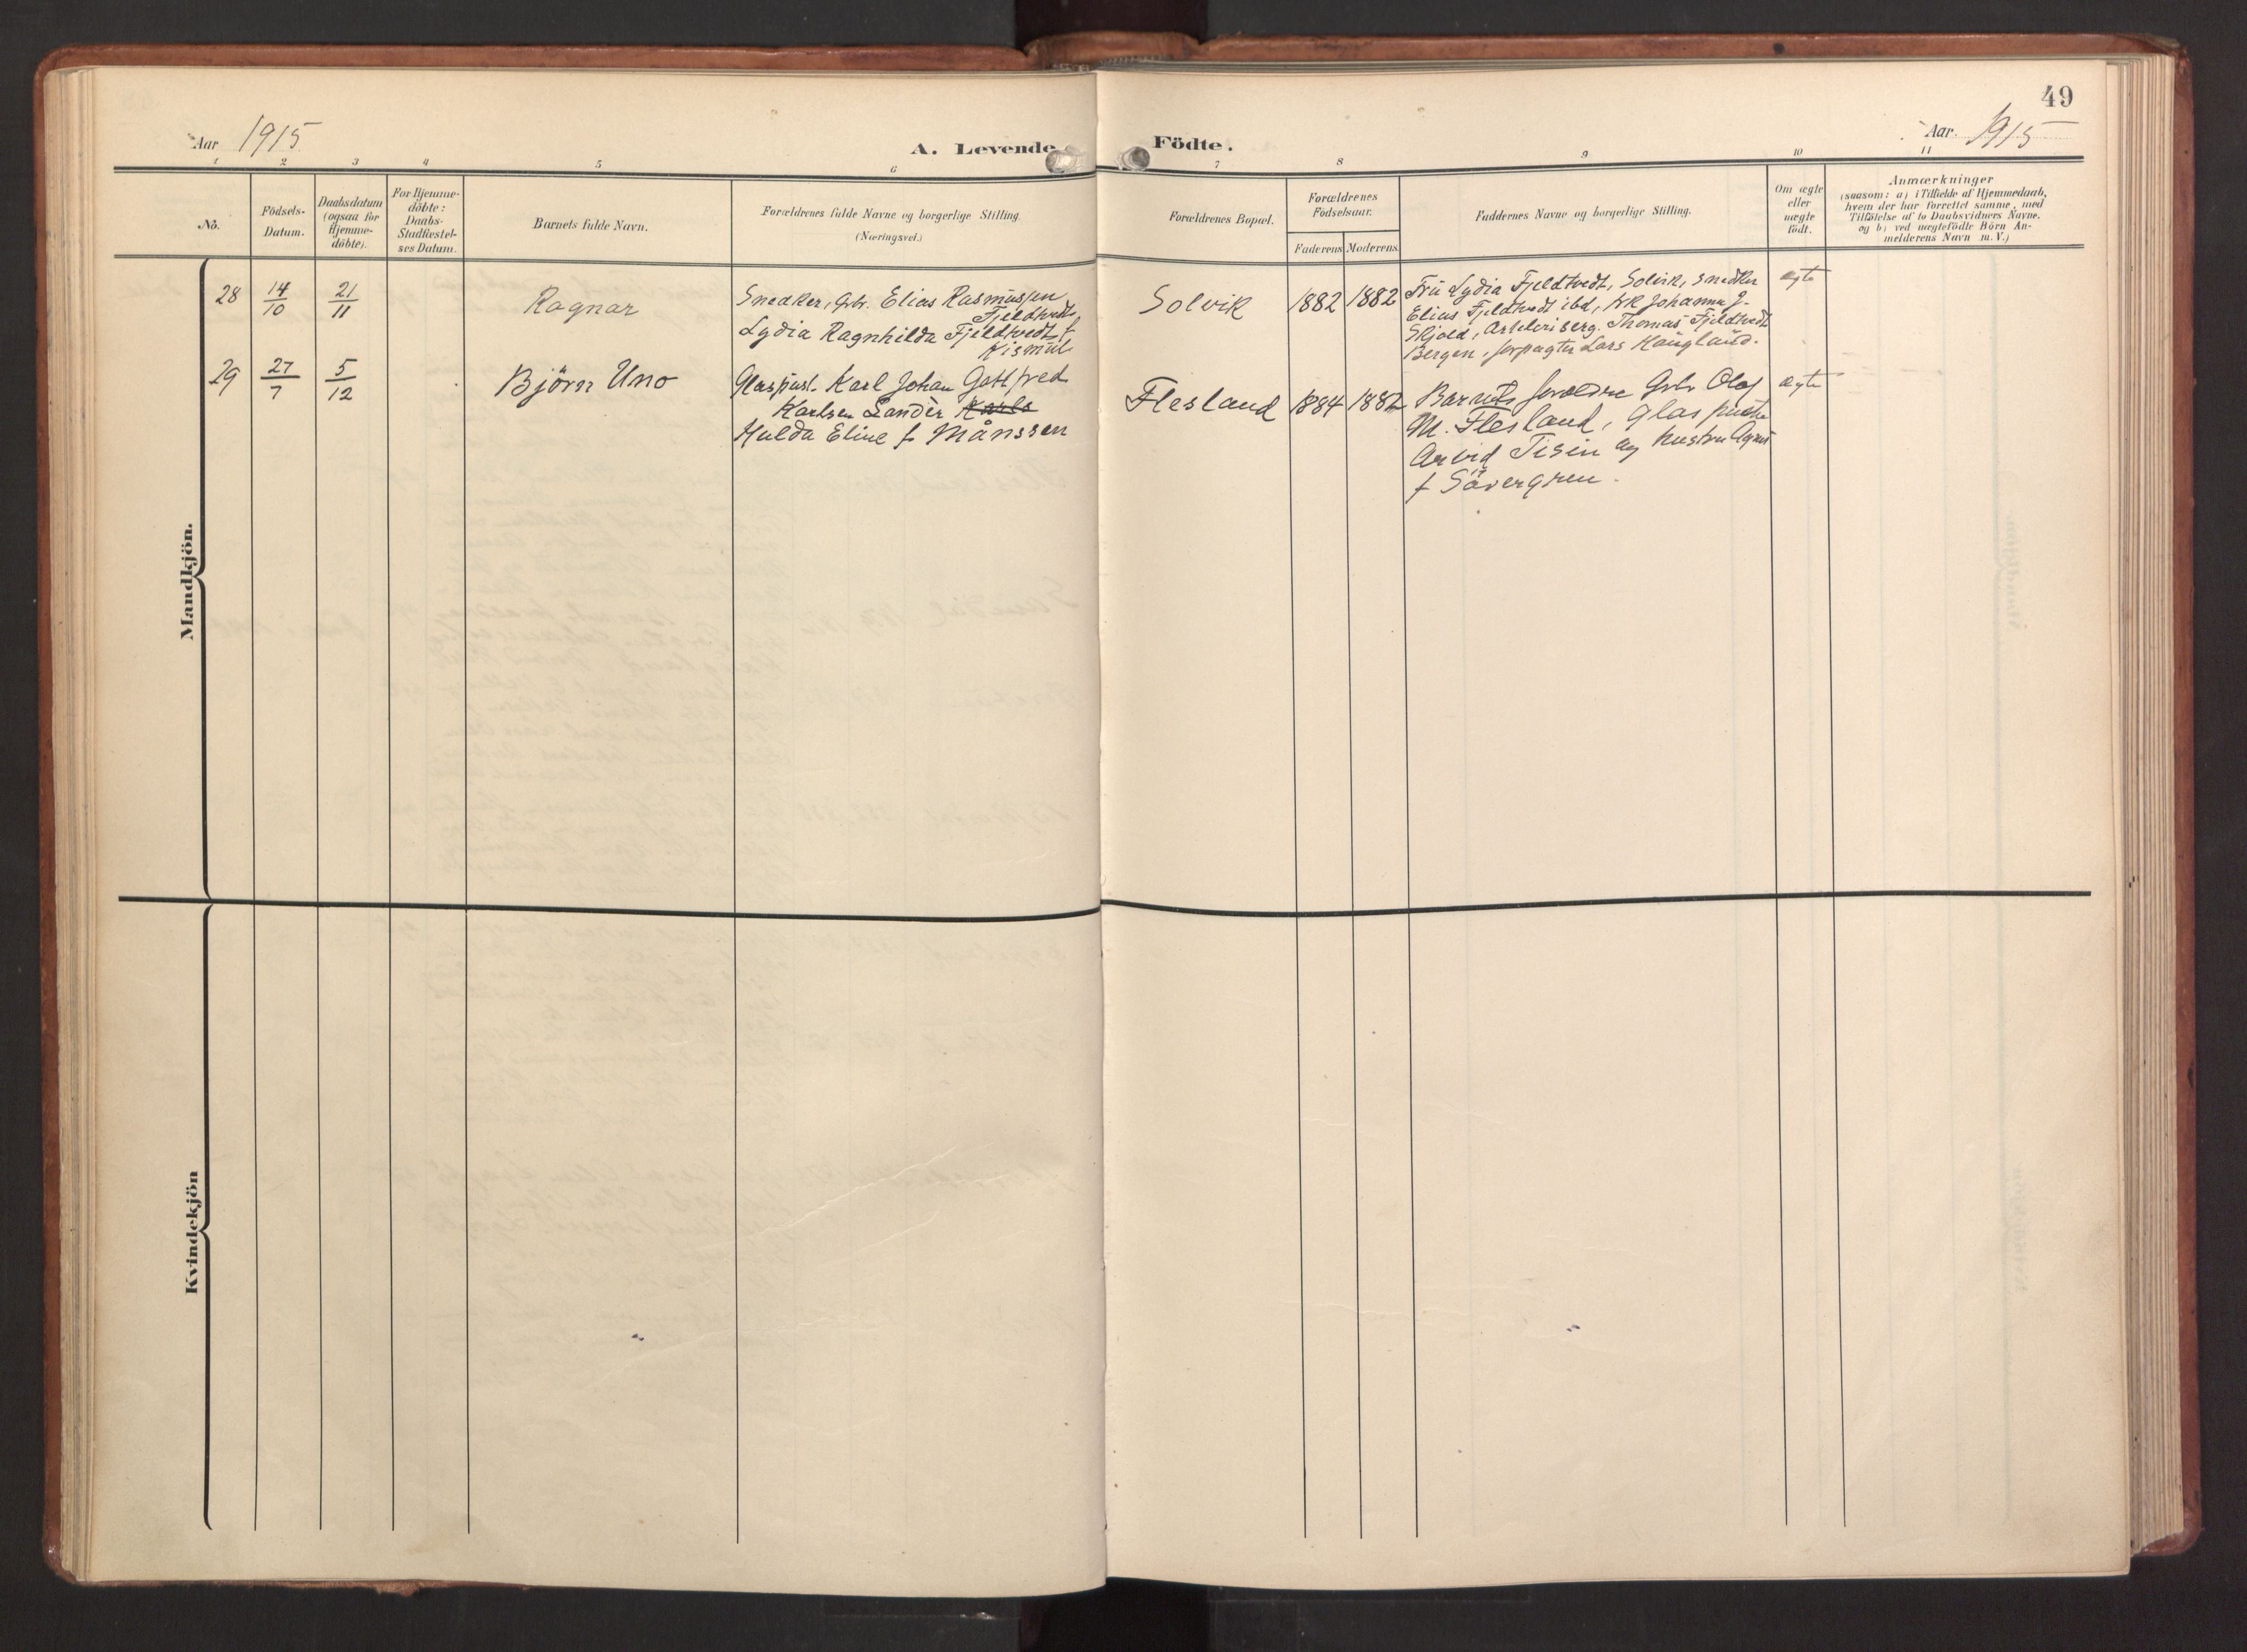 49
Aar 1915
A. Levende Födte.
Aar. 1915
1 2 3 4 5 6 7 8 9 10 11
No.
Födsels-
Datum.
Daabsdatum
(ogsaa for
Hjemme-
döbte).
For Hjemme-
döbte:
Daabs-
Stadfæstel-
ses Datum.
Barnets fulde Navn.
Forældrenes fulde Navne og borgerlige Stilling.
(Næringsvei.)
Forældrenes Bopæl.
Forældrenes
Födselsaar.
Faderens Moderens.
Faddernes Navne og borgerlige Stilling.
Om ægte
eller
uægte
födt.
Anmærkninger
(saasom: a) i Tilfælde af Hjemmedaab,
hvem der har forrettet samme, med
Tilföielse af to Daabsvidners Navne.
og b) ved uægtefödte Börn An-
melderens Navn m. V.)
Mandkjön.
28
14/10
21/11
Ragnar
Snedker, Gbr. Elias Rasmussen
Fjeldtvedt,
Lydia Ragnhilda Fjeldtvedt f
Kismul
Solvik
1882 1882
Fru Lydia Fjeldtvedt, Solvik, snedker
Elias Fjeldtvedt ibd, frk Johanna J.
Skjold, Thomas Fjeldtvedt
Bergen, forpagter Lars Haugland.
ægte
29
27/7
5/12
Björn Uno
Glaspust. Karl Johan Gottfred
Karlsen Sandèr Karls
Hulda Eline f Månssen
Flesland
1884 1882
Barnets forældre Gbr Olaf
M. Flesland, Glaspuster
Arvid Tisin og hustru Agnes
f Sövergren.
ægte
Kvindekjön